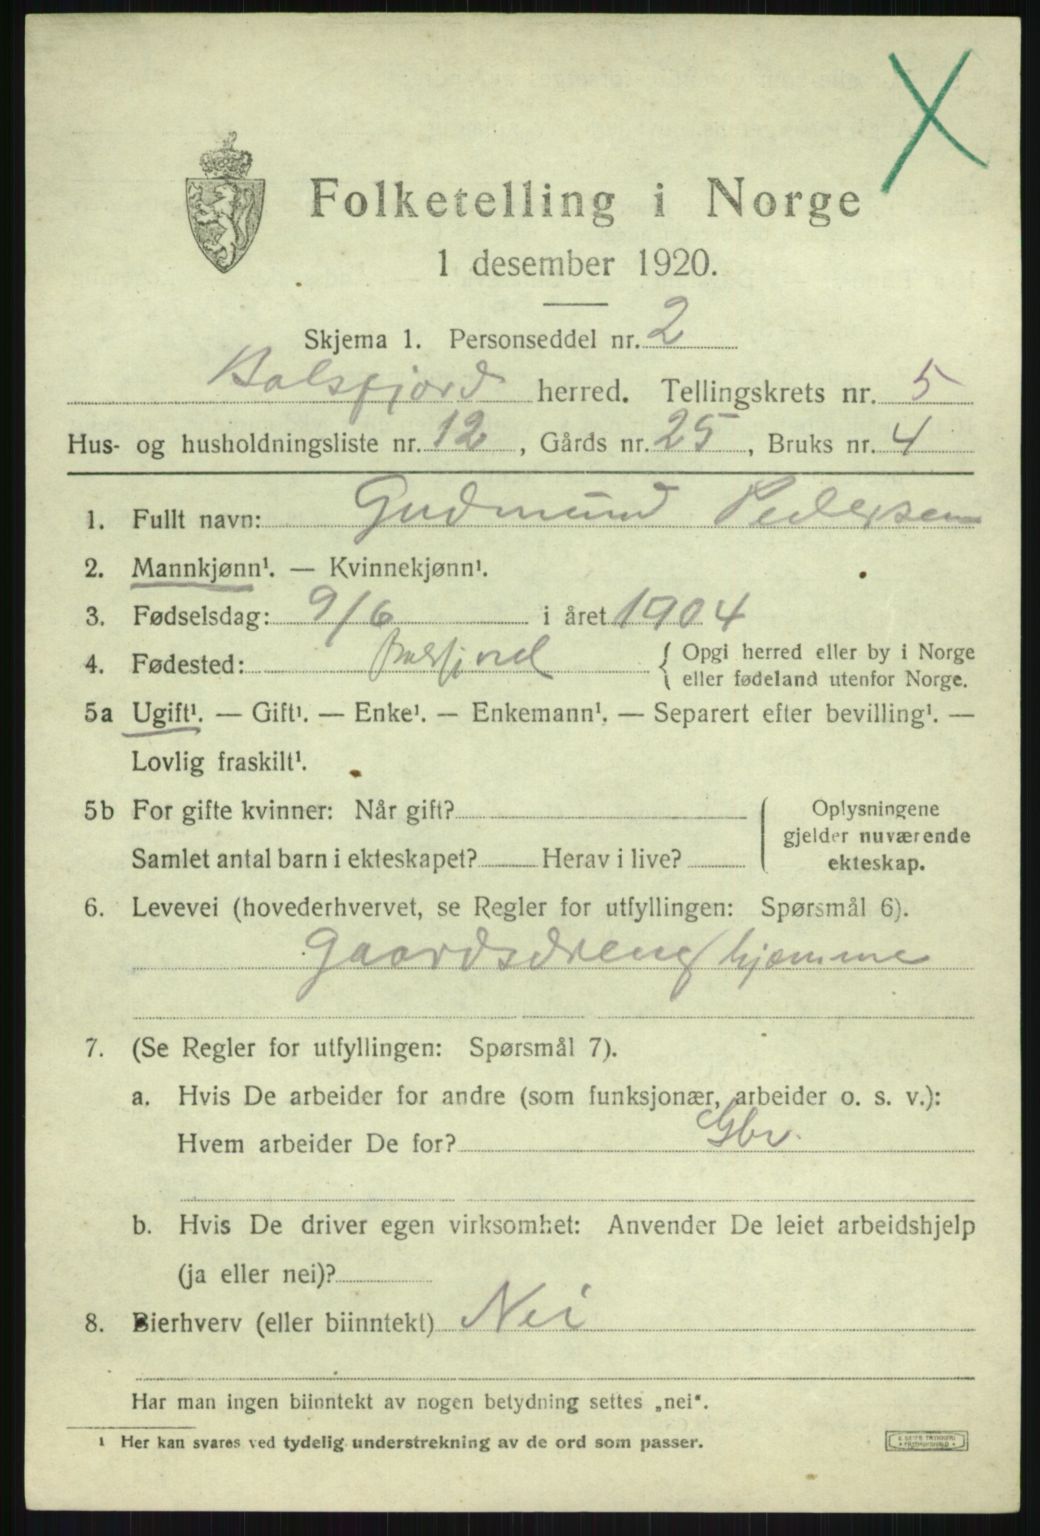 Folketelling i Norge
1 desember 1920.
Skjema 1. Personseddel nr. 2
Balsfjord herred. Tellingskrets nr. 5
Hus- og husholdningsliste nr. 12, Gårds nr. 25, Bruks nr. 4
1. Fullt navn: Gudmund Pedersen
2. Mannkjønn¹. — Kvinnekjønn¹.
3. Fødselsdag: 9/6 i året 1904
4. Fødested: Balsfjord { Opgi herred eller by i Norge
eller fødeland utenfor Norge.
5a Ugift¹. — Gift¹. — Enke¹. — Enkemann¹. — Separert efter bevilling¹. —
Lovlig fraskilt¹.
5b For gifte kvinner: Når gift?
Samlet antal barn i ekteskapet? Herav i live?
Oplysningene
gjelder nuværende
ekteskap.
6. Levevei (hovederhvervet, se Regler for utfyllingen: Spørsmål 6).
Gaardsdreng hjemme
7. (Se Regler for utfyllingen: Spørsmål 7).
a. Hvis De arbeider for andre (som funksjonær, arbeider o. s. v.):
Hvem arbeider De for? Gbr.
b. Hvis De driver egen virksomhet: Anvender De leiet arbeidshjelp
(ja eller nei)?
8. Bierhverv (eller biinntekt) Nei
Har man ingen biinntekt av nogen betydning settes „nei".
¹ Her kan svares ved tydelig understrekning av de ord som passer.